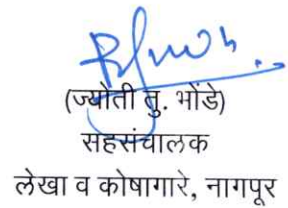 (ज्योती तु. भोंडे)
सहसंचालक
लेखा व कोषागारे, नागपूर